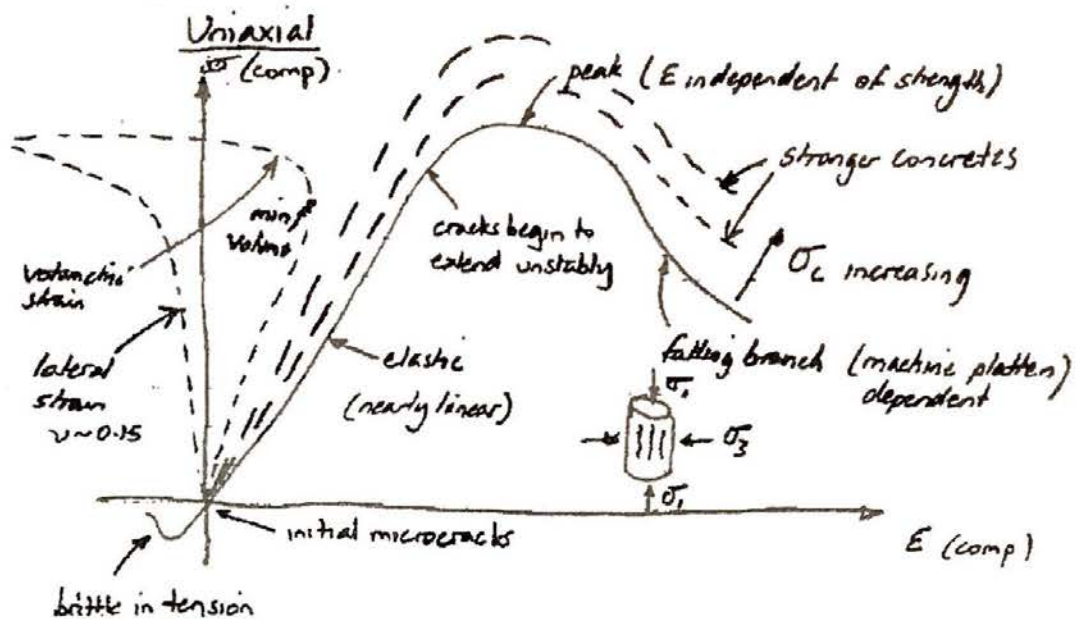 Uniaxial
σ (comp)
peak (ε independent of strength)
stronger concretes
min
volume
cracks begin to
extend unstably
σc increasing
volumetric
strain
lateral
strain
ν~0.15
elastic
(nearly linear)
falling branch (machine platten)
dependent
σ1
σ3
σ1
initial microcracks
ε (comp)
brittle in tension